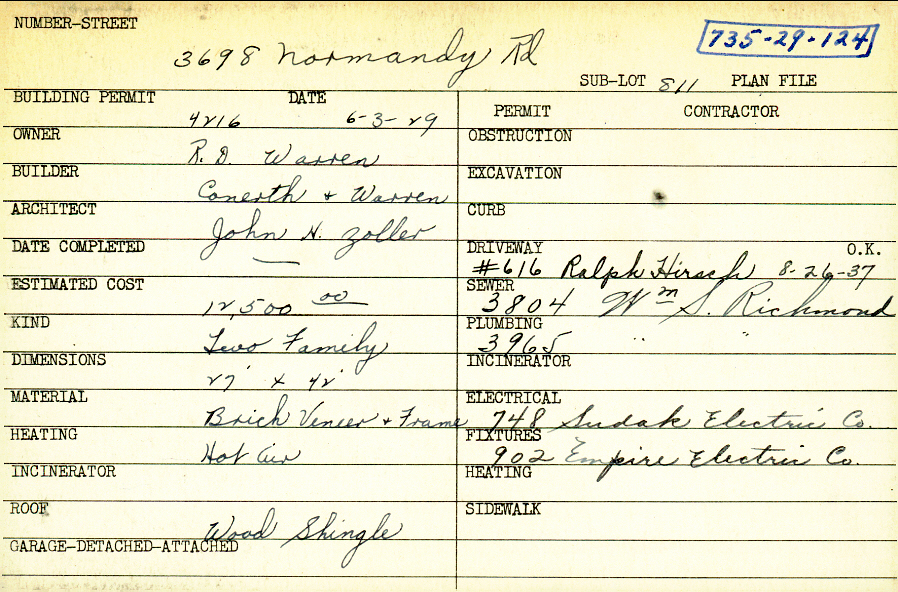 NUMBER-STREET
3698 Normandy Rd
735-29-124
SUB-LOT 811 PLAN FILE
BUILDING PERMIT DATE
4216 6-3-29
OWNER
R. D. Warren
BUILDER
Conerth + Warren
ARCHITECT
John H. Zoller
DATE COMPLETED
—
ESTIMATED COST
12,500 00
KIND
Two Family
DIMENSIONS
27' x 42'
MATERIAL
Brick Veneer + Frame
HEATING
Hot Air
INCINERATOR
ROOF
Wood Shingle
GARAGE-DETACHED-ATTACHED
PERMIT CONTRACTOR
OBSTRUCTION
EXCAVATION
CURB
DRIVEWAY O.K.
#616 Ralph Hirsch 8-26-37
SEWER
3804 Wm S. Richmond
PLUMBING
3965 " "
INCINERATOR
ELECTRICAL
748 Sudak Electric Co.
FIXTURES
902 Empire Electric Co.
HEATING
SIDEWALK